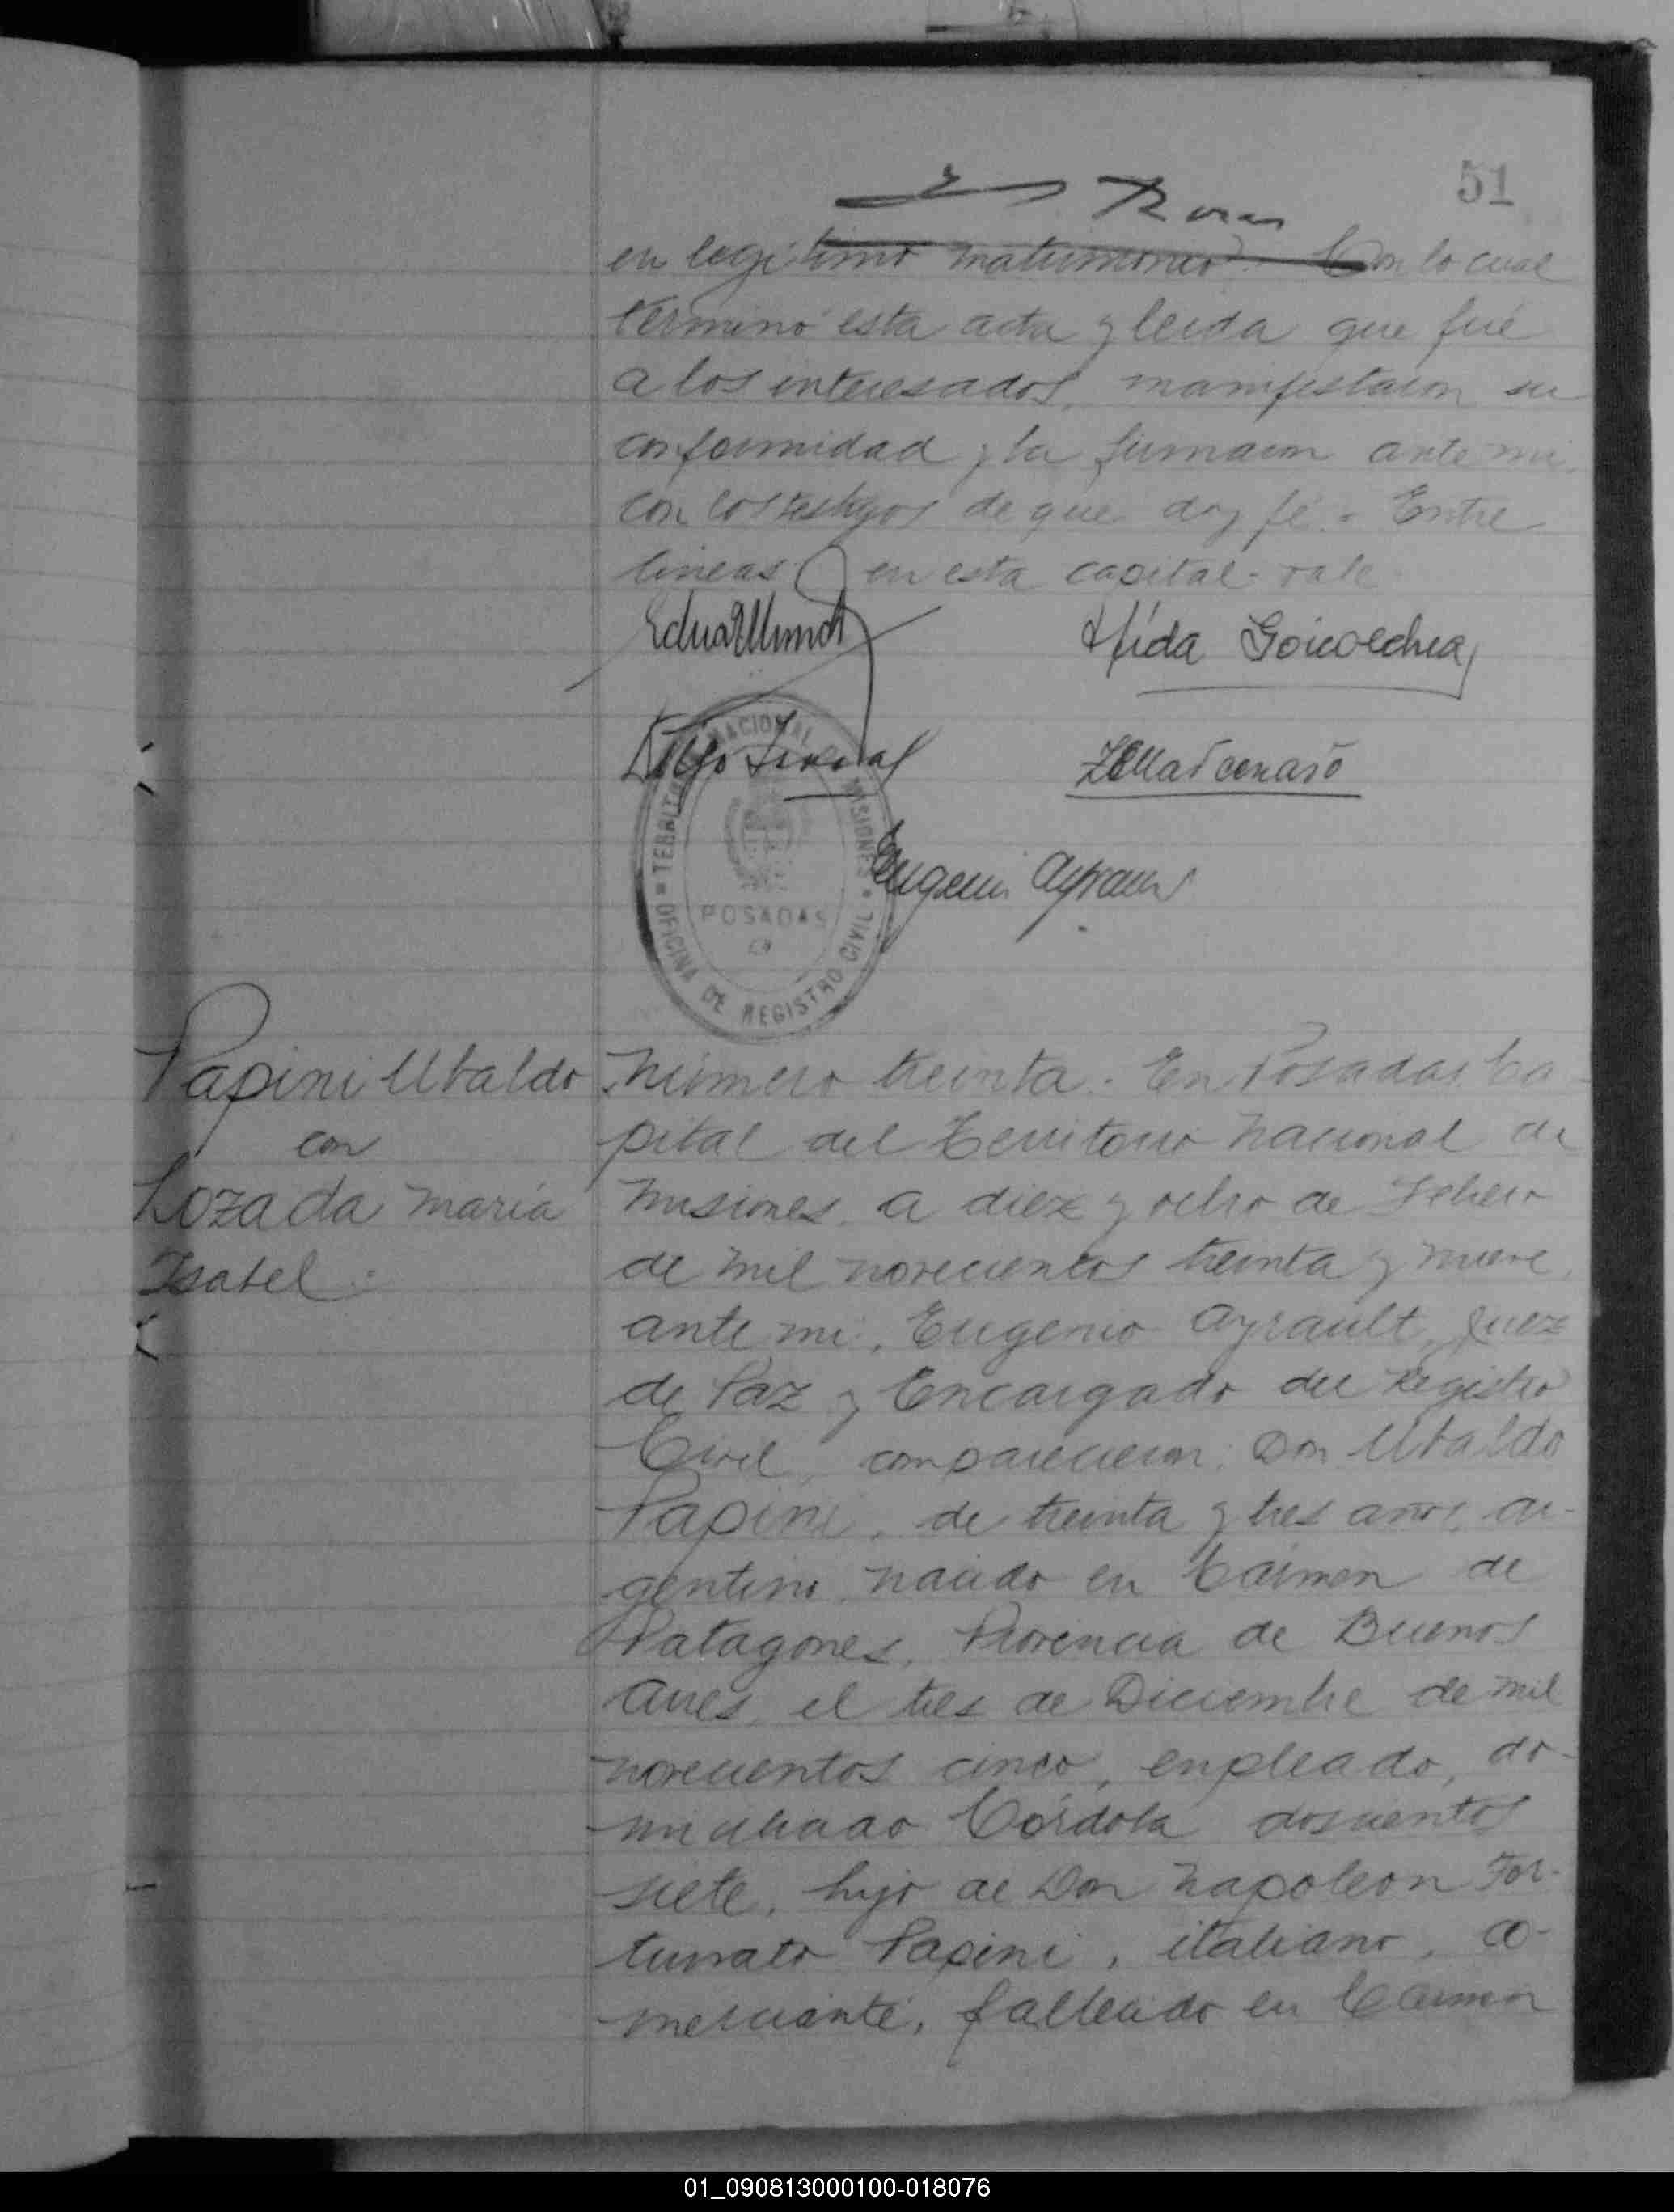 51
en legitimo matrimonio. Con lo cual
terminó esta acta y leida que fué
a los interesados, manifestaron su
conformidad y la firmaron ante mi
con los testigos de que doy fé. - Entre
lineas en esta capital - vale
Goicoechea
TERRITORIO NACIONAL MISIONES
POSADAS
OFICINA DE REGISTRO CIVIL
Eugenio Ayrault
Papini Ubaldo
con
Lozada Maria
Isabel.
Número treinta. En Posadas Ca-
pital del Territorio Nacional de
Misiones, a diez y ocho de Febrero
de mil novecientos treinta y nueve,
ante mi, Eugenio Ayrault, Juez
de Paz y Encargado del Registro
Civil, comparecieron: Don Ubaldo
Papini, de treinta y tres años, ar-
gentino, nacido en Cármen de
Patagones, Provincia de Buenos
Aires, el tres de Diciembre de mil
novecientos cinco, empleado, do-
miciliado Córdoba doscientos
siete, hijo de Don Napoleon For-
tunato Papini, italiano, co-
merciante, fallecido en Carmen
01_090813000100-018076